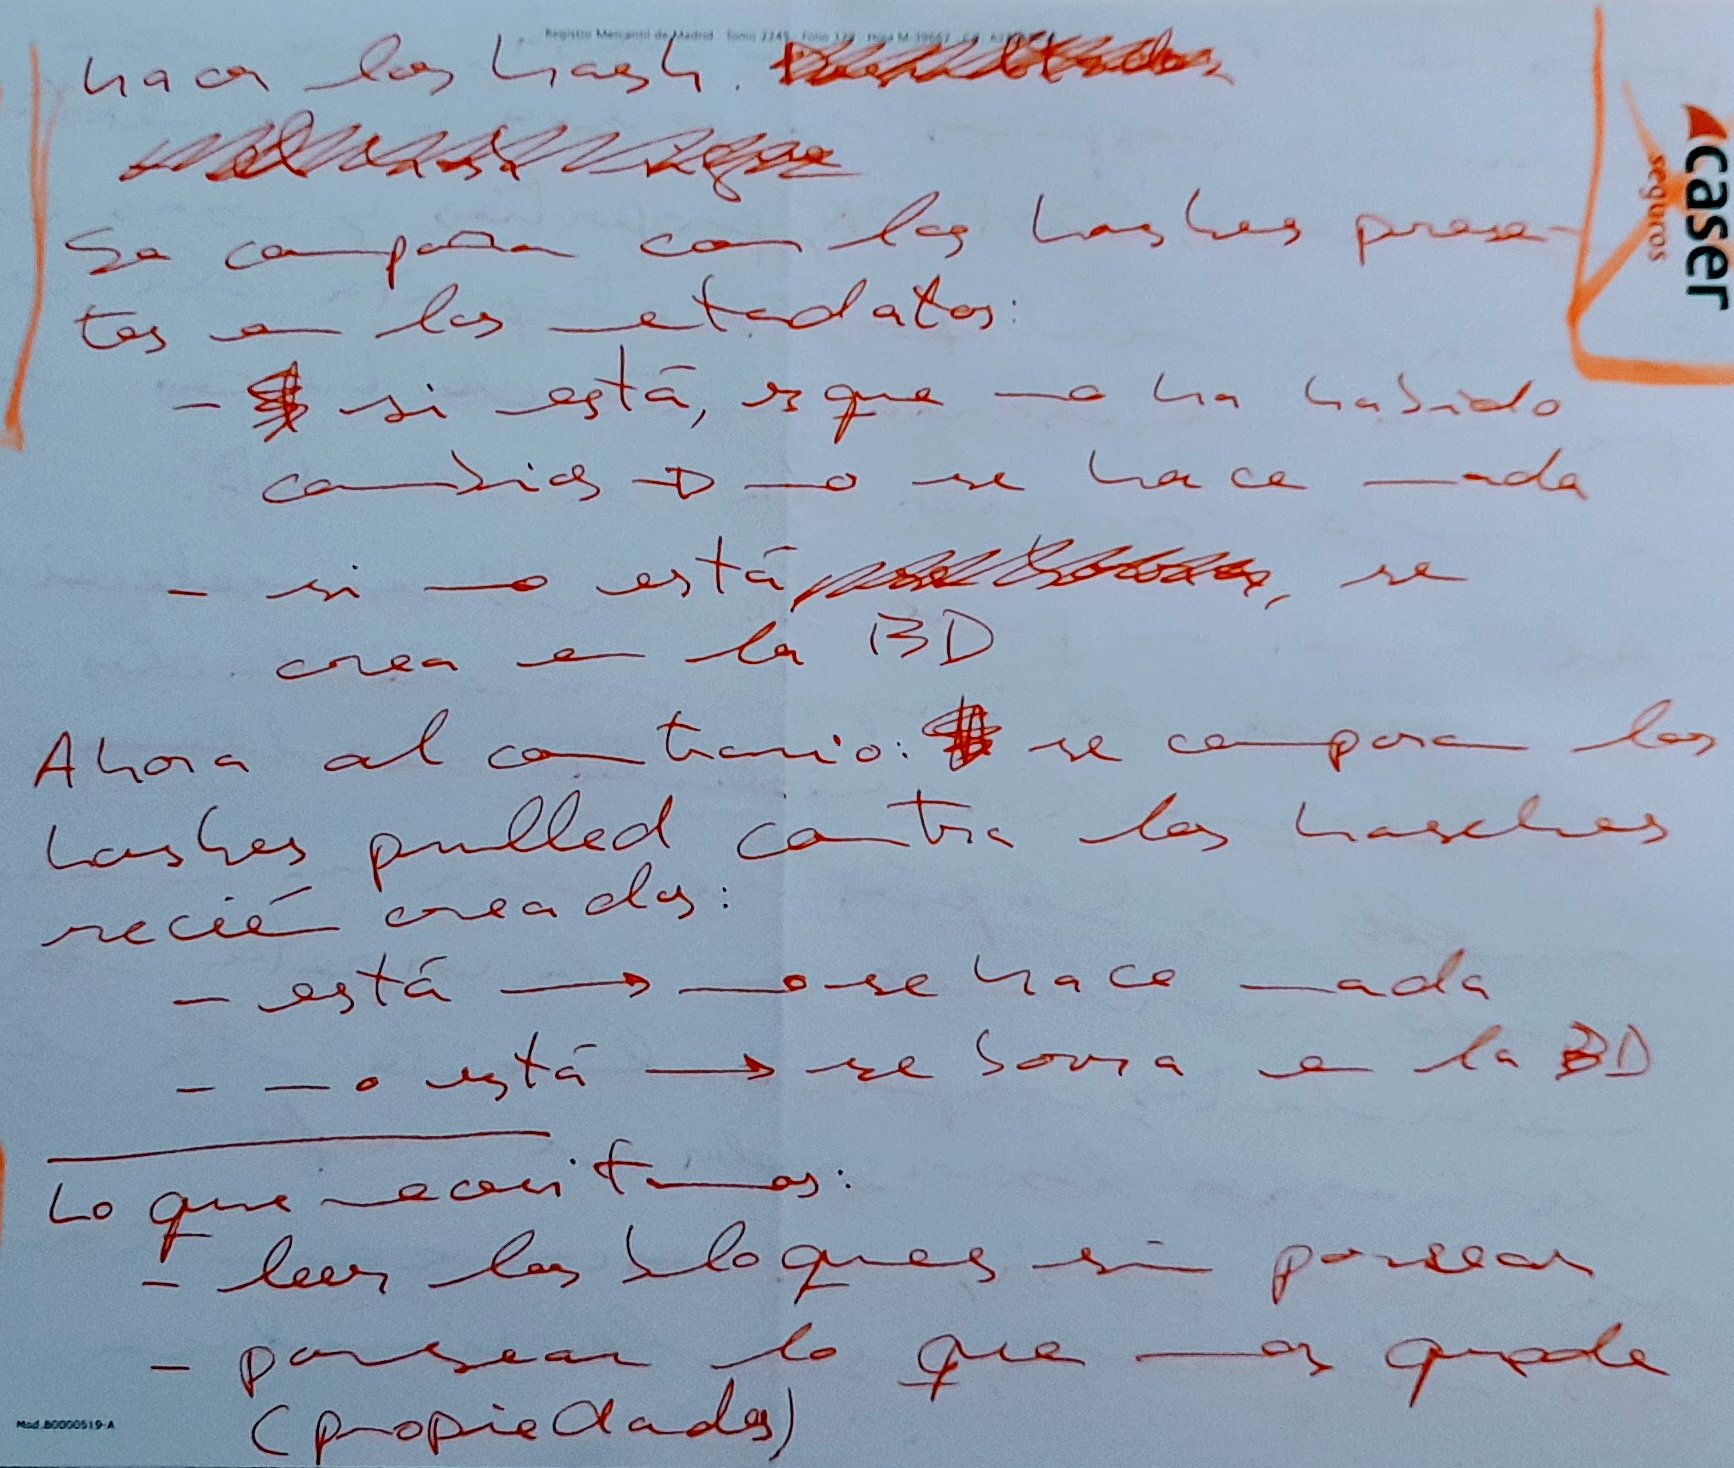 Registro Mercantil de Madrid Tomo 2245 Folio 179 Hoja M-39662
hacer los hash.
Se compara con los hashes presen-
tes en los metadatos:
- si está, es que no ha habido
cambios → no se hace nada
- si no está, se
crea en la BD
Ahora al contrario: se comparan los
hashes pulled contra los hasches
recién creados:
- está → no se hace nada
- no está → se borra en la BD
Lo que necesitamos:
- leer los bloques sin parsear
- parsear lo que nos quede
(propiedades)
caser
seguros
Mod. B0000519-A